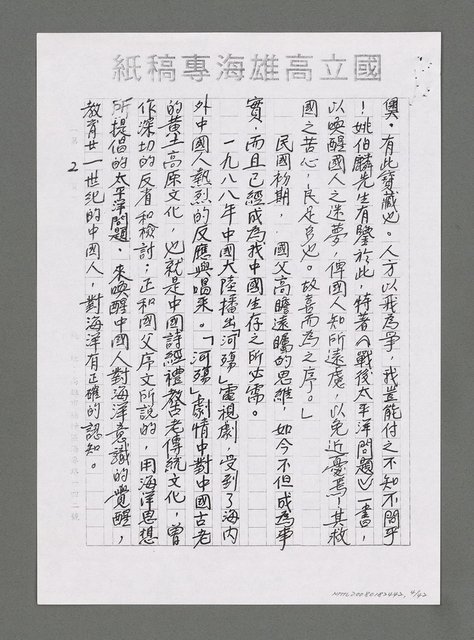 國立高雄海專稿紙
奧。有此寶藏也。人方以我為爭,我豈能付之不知不問乎
!姚伯麟先生有鑒於此,特著《戰後太平洋問題》一書,
以喚醒國人之迷夢,俾國人知所遠慮,以免近憂焉!其救
國之苦心,良足多也。故喜而為之序。」
民國初期, 國父高瞻遠矚的思維,如今不但成為事
實,而且已經成為我中國生存之所必需。
一九八八年中國大陸播出「河殤」電視劇,受到了海內
外中國人熱烈的反應與喝采。「河殤」劇情中對中國古老
的黃土高原文化,也就是中國詩經禮教古老傳統文化,曾
作深切的反省和檢討;正和國父序文所說的,用海洋思想
所提倡的太平洋問題.來喚醒中國人對海洋意識的覺醒,
教育廿一世紀的中國人,對海洋有正確的認知。
2
NMTL20080182442, 4/42